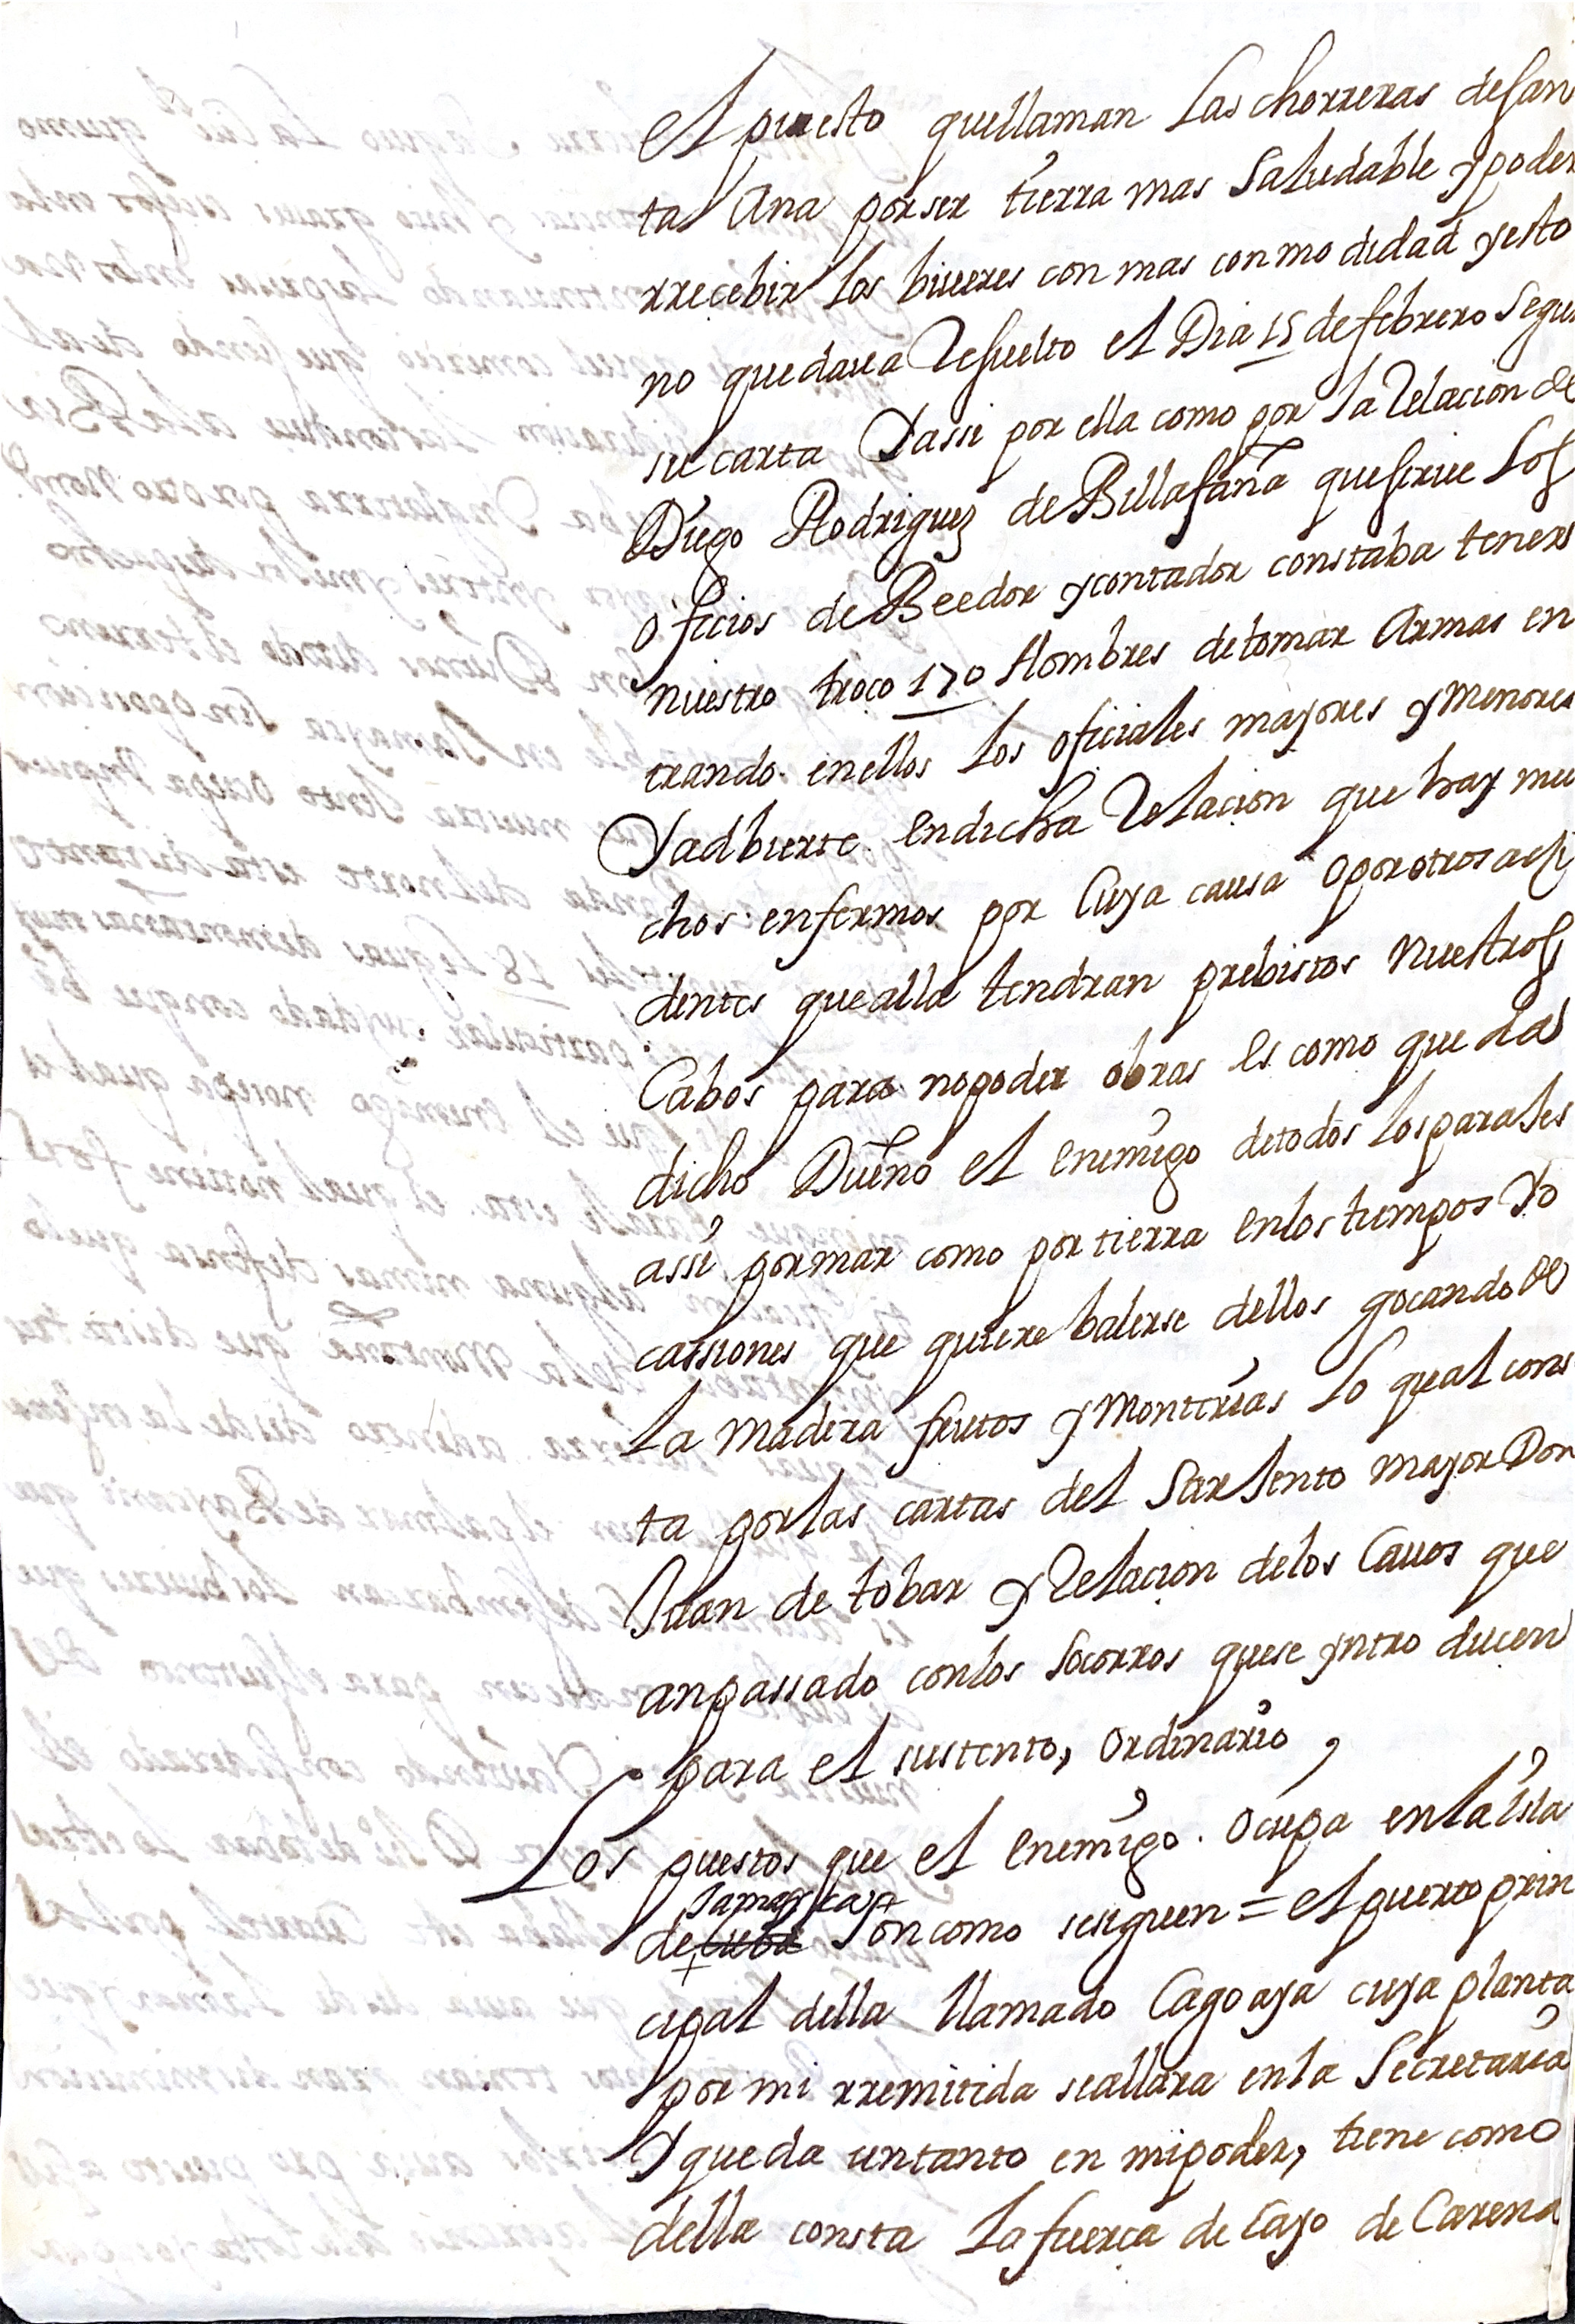 el puesto quellaman Las chorreras desan
ta Ana porser tierra mas saludable y poder
rrecebir los biueres con mas conmodidad y esto
no quedaua Resuelto el Dia 15 de febrero segun
su carta Y assi por ella como por la Relacion de
Diego Rodriguez de Billafaña quesirue Los
oficios de Beedor y contador constaba teners
nuestro troco 170 Hombres detomar Armas en
trando enellos los oficiales mayores y menores
Y adbierte endicha Relacion que hay mu
chos enfermos por Cuya causa oporotros acçi
dentes quealla tendran prebistos Nuestros
Cabos para nopoder obrar Es como queda
dicho Dueño el Enemigo detodos losparajes
assi pormar como portierra Enlostiempos Yo
cassiones que quiere balerse dellos gocando de
La Madera frutos y Monterias Lo qual cons
ta porlas cartas del Sarjento mayor Don
Juan de tobar y Relacion delos Cauos que
anpassado conlos Socorros quese yntroducen
para el sustento, ordinario,
Los puestos que el Enemigo. ocupa enla isla
Jamayca
de cuba Son como sesiguen = el puerto prin
cipal della llamado Cagoaya cuya planta
por mi rremitida seallara enla Secretaria
Y queda untanto en mipoder, tiene como
della consta La fuerça de Cayo de Carena